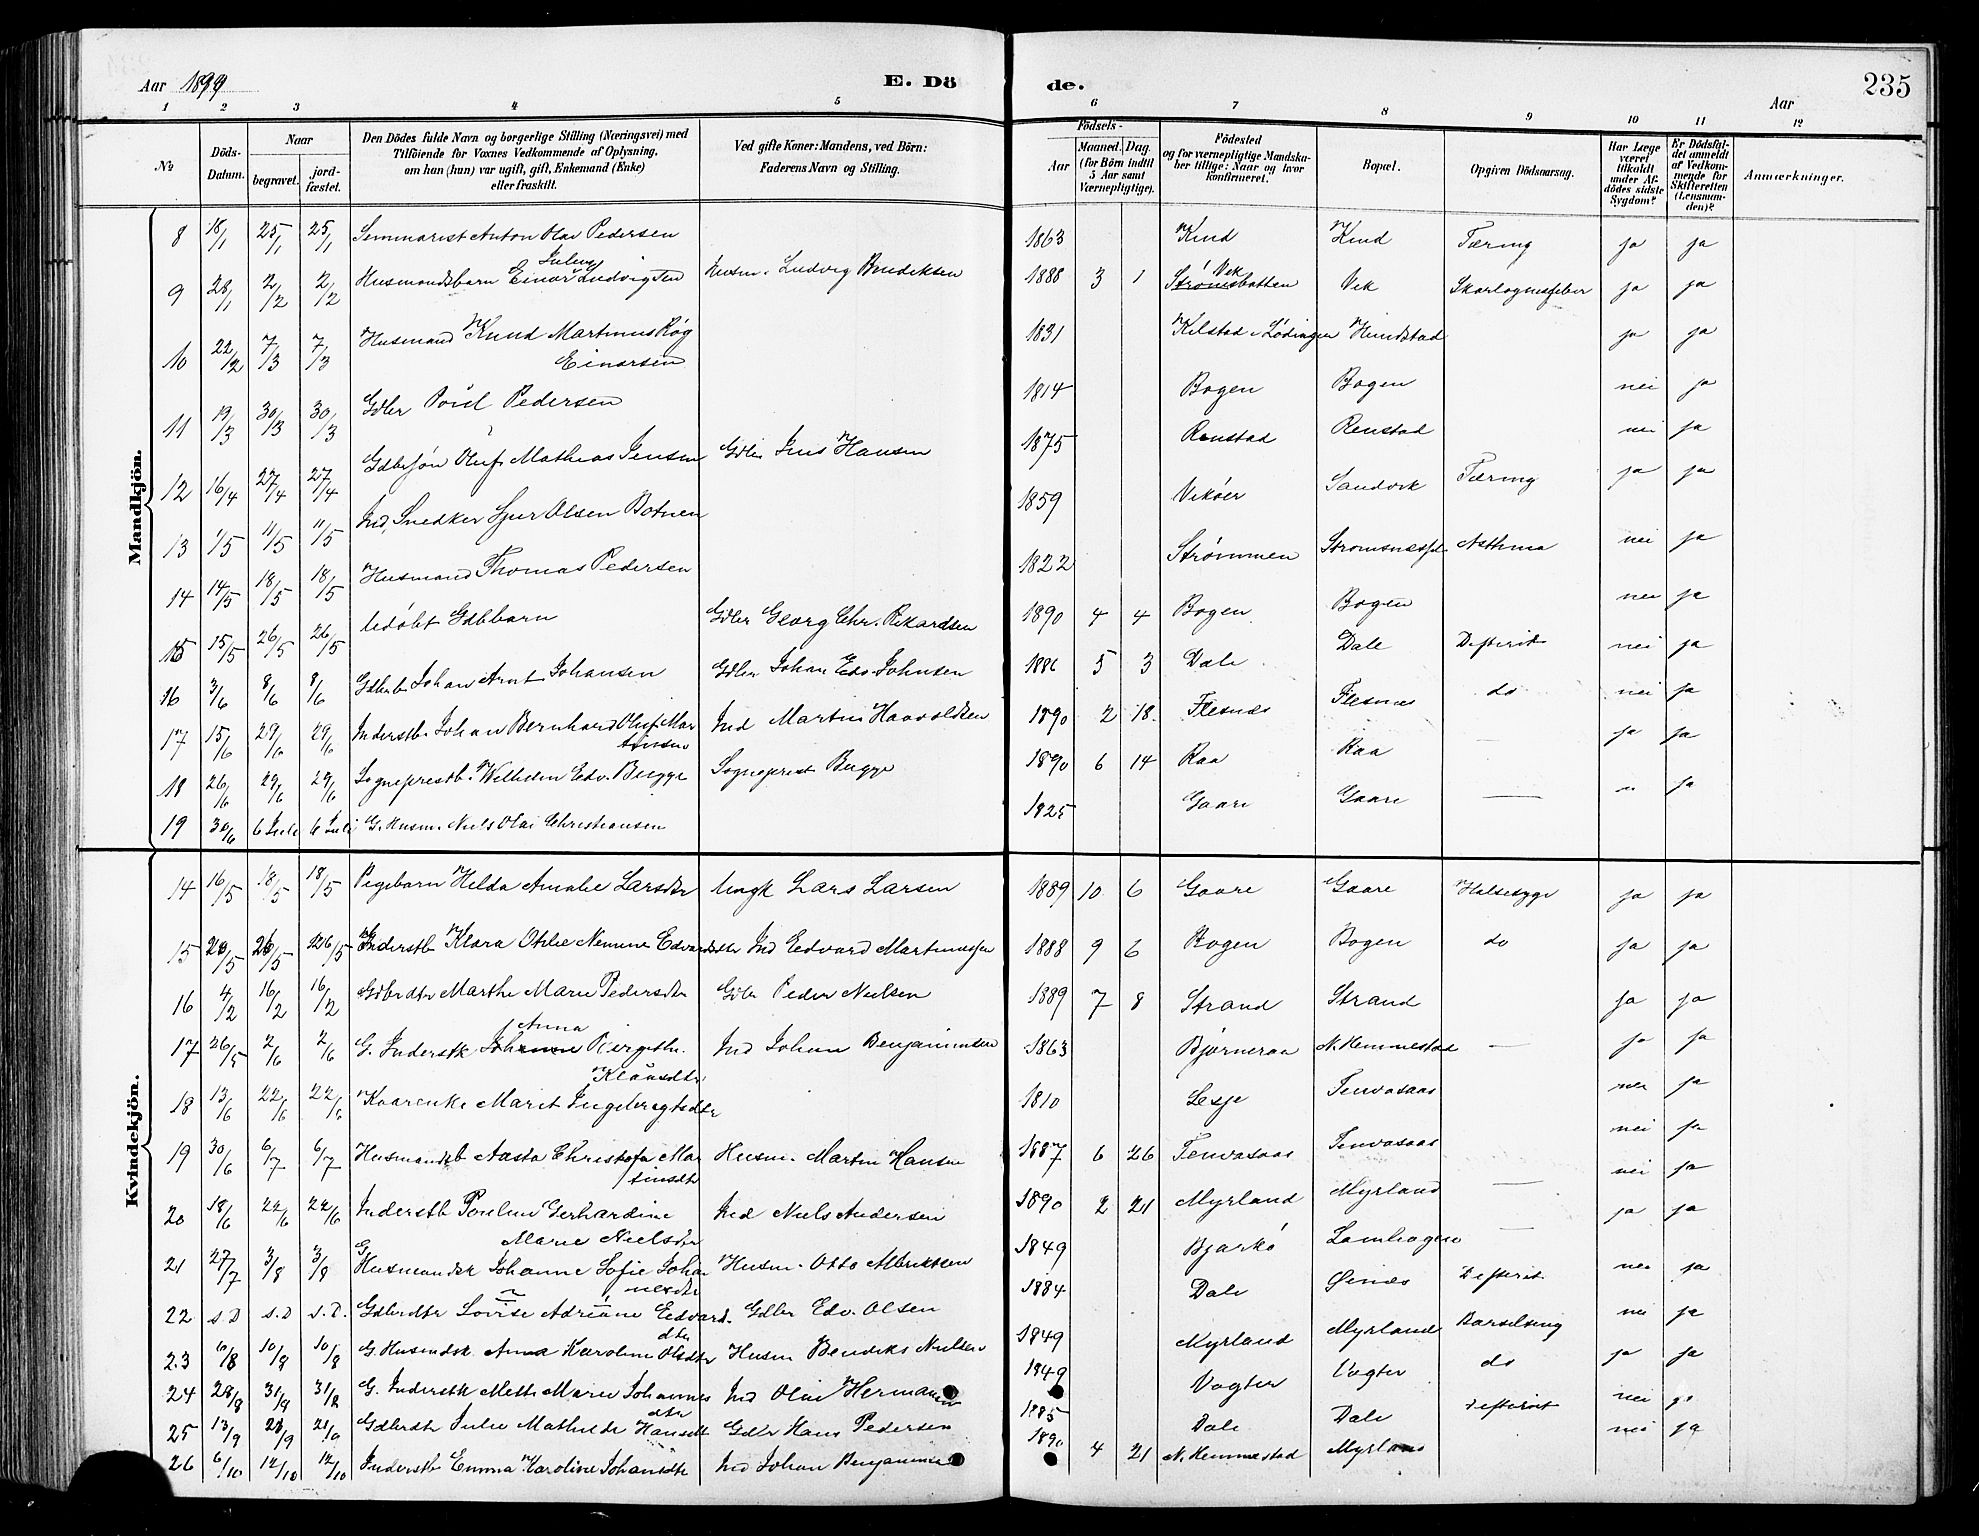 Aar 1890
E. Dö
de.
Aar
235
1 2 3 4 5 6 7 8 9 10 11 12
No
Döds-Datum.
Naar
begravet.
jord-fæstet.
Den Dödes fulde Navn og borgerlige Stilling (Næringsvei) med
Tilföiende for Voxnes Vedkommende af Oplysning,
om han (hun) var ugift, gift, Enkemand (Enke)
eller fraskilt.
Ved gifte Koner: Mandens, ved Börn:
Faderens Navn og Stilling.
Födsels-
Aar
Maaned. Dag.
(for Börn indtil
5 Aar samt
Værnepligtige).
Födested
og for værnepligtige Mandska-
ber tillige: Naar og hvor
konfirmeret.
Bopæl.
Opgiven Dödsaarsag.
Har Læge
været
tilkaldt
under Af-
dödes sidste
Sygdom?
Er Dödsfal-
det anmeldt
af Vedkom-
mende for
Skifteretten
(Lensman-
den)?
Anmærkninger.
Mandkjön.
8 18/1 25/1 25/1 Seminarist Anton Olai Pedersen 1863 Kind Kind Tæring ja ja
9 28/1 2/2 2/2 Husmandsbarn Einar Julius Ludvigsen Husm. Ludvig Bendiksen 1888 3 1 Vek Strømsbotten Vek Skarlagensfeber ja ja
10 22/2 7/3 7/3 Husmand Knud Martinus Røg
Einarsen 1831 Kilstad i Lødingen Hundstad ja ja
11 19/3 30/3 30/3 Gdbr Poul Pedersen 1814 Bogen Bogen nei ja
12 16/4 27/4 27/4 Gdbrsøn Oluf Mathias Jensen Gdbr Jens Hansen 1875 Renstad Renstad nei ja
13 1/5 11/5 11/5 Ind. Snedker Sjur Olsen Botnen 1859 Vikøer Sandvik Tæring ja ja
14 14/5 18/5 18/5 Husmand Thomas Pedersen 1822 Strømmen Stromsnesfd. Asthma nei ja
15 15/5 26/5 26/5 Udøbt Gdbbarn Gdbr Georg Chr. Rikardsen 1890 4 4 Bogen Bogen nei ja
16 3/6 8/6 8/6 Gdbrb Johan Arnt Johansen Gdbr Johan Edv. Johnsen 1886 5 3 Dale Dale Defterit nei ja
17 15/6 29/6 29/6 Inderstb. Johan Bernhard Oluf Mar
tinsen Ind Martin Haavoldsen 1890 2 18 Flesnes Flesnes do nei ja
18 26/6 29/6 29/6 Sogneprestb. Wilhelm Edv. Bugge Sogneprest Bugge 1890 6 14 Raa Raa — ja ja
19 30/6 6 Juli 6 Juli G. Husm. Niels Olai Christiansen 1825 Gaare Gaare — ja
Kvindekjön.
14 16/5 18/5 18/5 Pigebarn Hilda Amalie Larsdtr Ungk Lars Larsen 1889 10 6 Gaare Gaare Halsesyge ja ja
15 20/5 26/5 26/5 Inderstb Klara Otilie Nemine Edvardsdtr Ind Eedvard Martinussen 1888 9 6 Bogen Bogen do ja ja
16 4/2 16/2 16/2 Gdbrdtr Marthe Marie Pedersdtr Gdbr Peder Nielsen 1889 7 8 Strand Strand ja ja
17 26/5 2/6 2/6 G. Inderstk Anna Birgithe
Klausdtr Ind Johan Benjaminsen 1863 Bjørneraa N. Hemmestad — ja ja
18 13/6 22/6 22/6 Kaarenke Marit Ingebregtsdtr 1810 Lesje Tenvasaas nei ja
19 30/6 6/7 6/7 Husmandsb Aasta Christofa Mar
tinsdtr Husm. Martin Hansen 1887 6 26 Tenvasaas Tenvasaas nei ja
20 18/6 22/6 22/6 Inderstb Pouline Gerhardine
Marie Nielsdtr Ind Niels Andersen 1890 2 21 Myrland Myrland — nei ja
21 27/7 3/8 3/8 G Husmandsk Johanne Sofie Johan
nesdtr Husm. Otto Albriktsen 1849 Bjarkø — ja ja
22 s.D s.D s.D. Gdbrdtr Lovise Adriane Eedvard-
dtr Gdbr Edv. Olsen 1884 Dale Øines Defterit nei ja
23 6/8 10/8 10/8 G. Husmdsk. Anna Karoline Olsdtr Husm Bendiks Nielsen 1849 Myrland Myrland Barselseng nei ja
24 28/8 31/8 31/8 G. Inderstk Mette Marie Johannes
dtr Ind Olai Hermansen 1849 Vogter Vogter do ja ja
25 13/9 21/9 21/9 Gdbrdtr Julie Mathilde Hansdt Gdbr Hans Pedersen 1885 Dale Dale Defterit nei ja
26 6/10 12/10 12/10 Inderstb Emma Karoline Johansdtr Ind Johan Benjaminsen 1890 4 21 N. Hemmestad Myrland nei ja